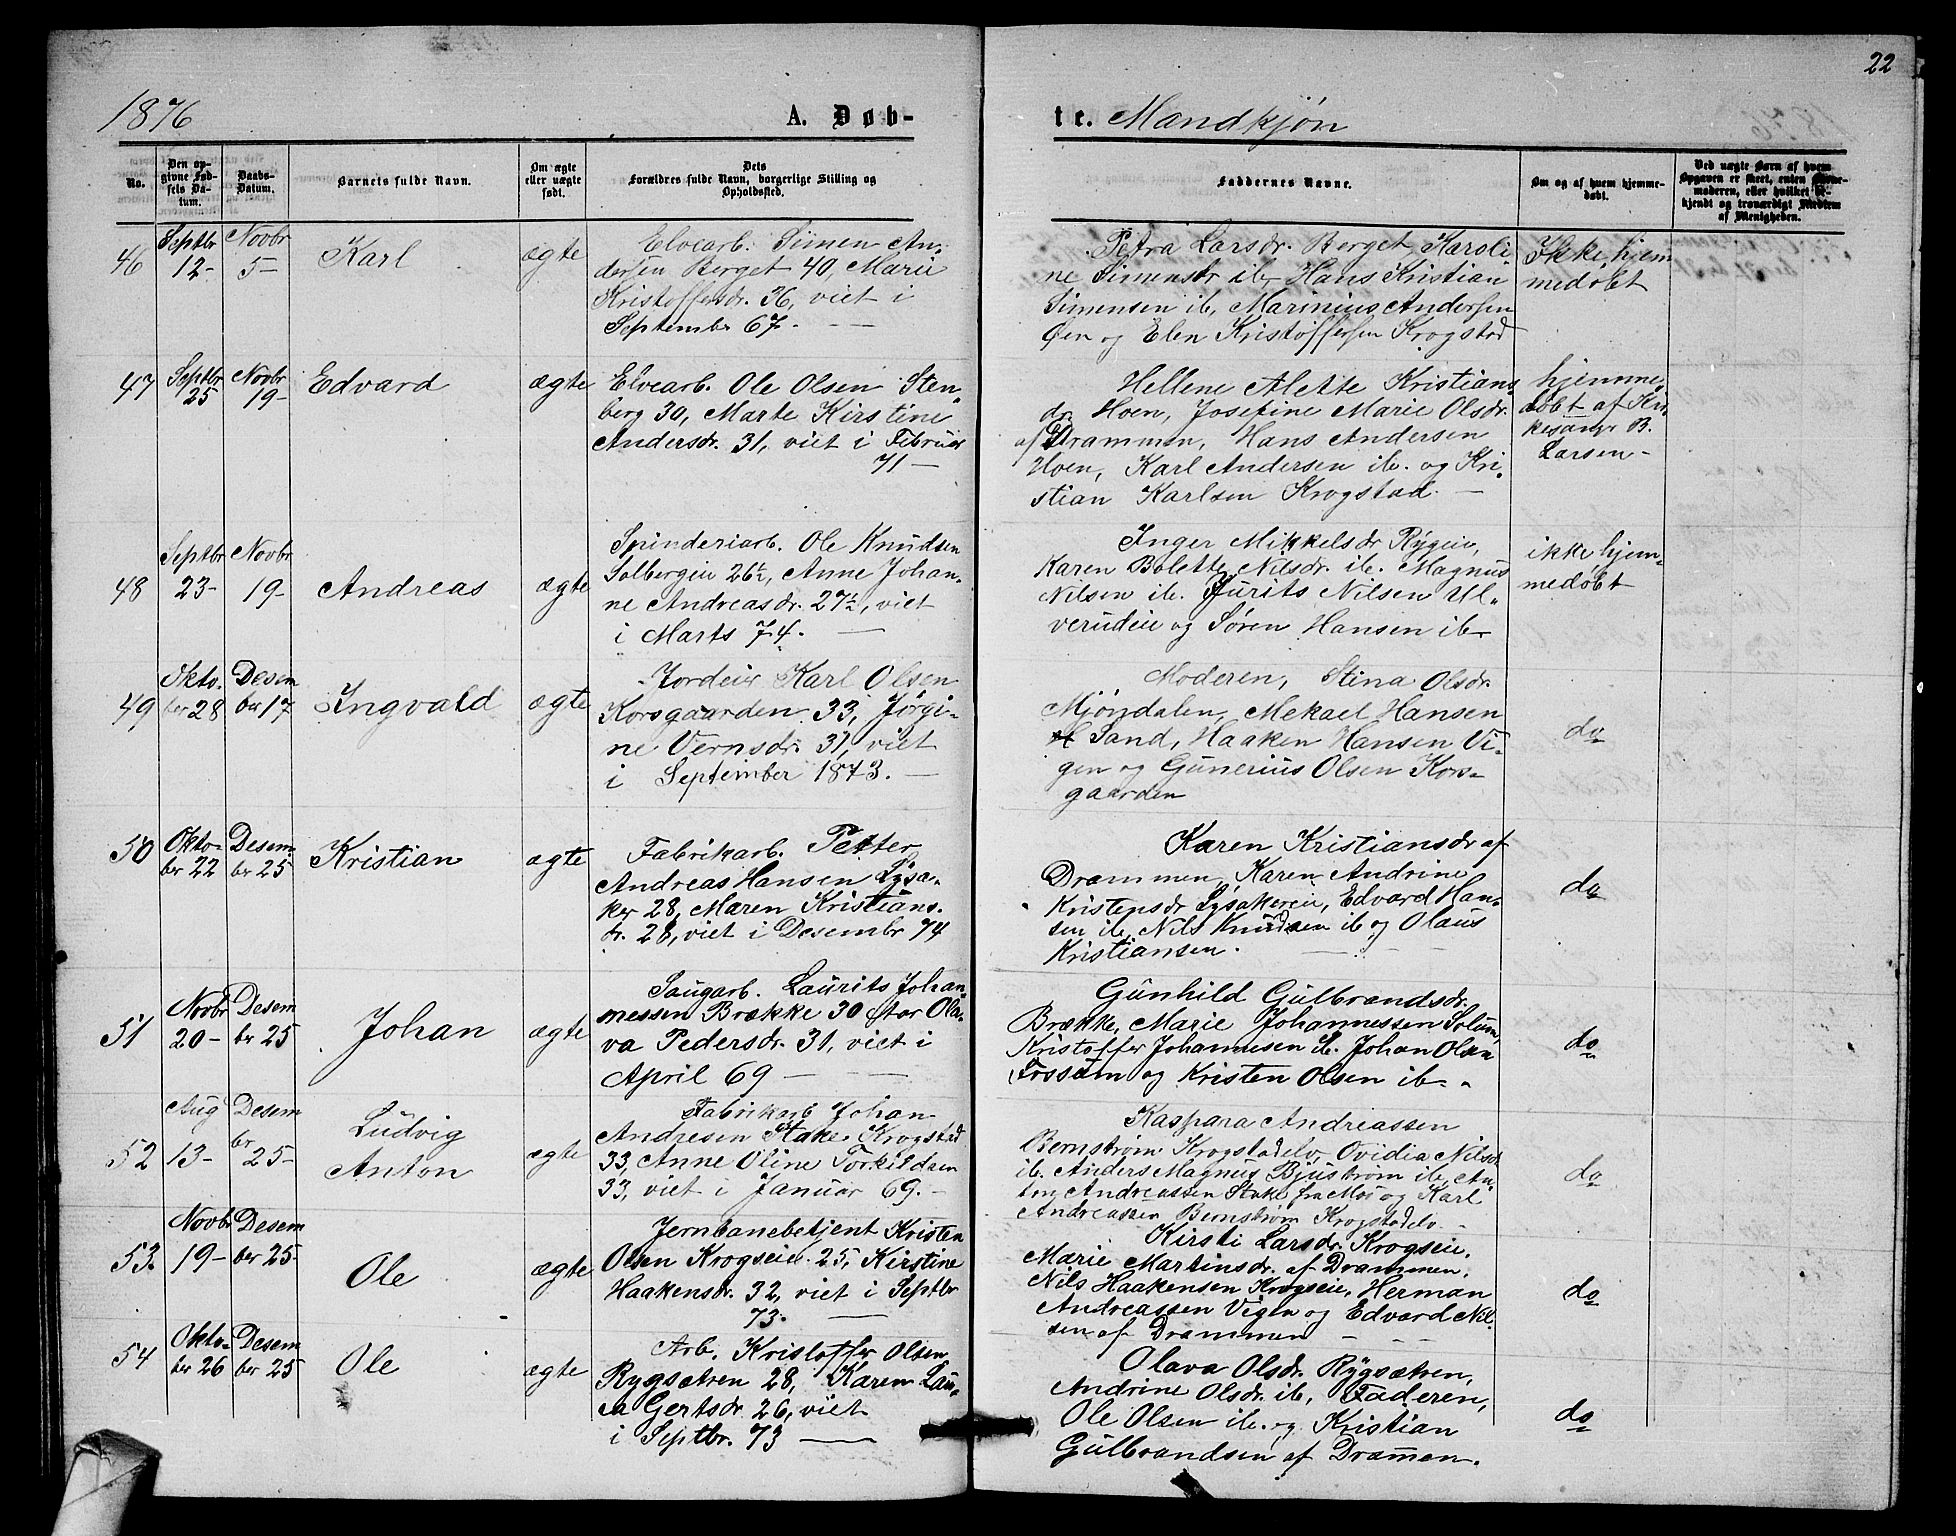 22
1876
A. Døb-
te. Mandkjøn
No.
Den op-
givne Fød-
sels Da-
tum.
Daabs-
Datum.
Barnets fulde Navn.
Om ægte
eller uægte
født.
Dets
Forældres fulde Navn, borgerlige Stilling og
Opholdssted.
Faddernes Navne.
Om og af hvem hjemme-
døbt.
Ved uægte Børn af hvem
Opgaven er skeet, enten Barne-
moderen, eller hvilket be-
kjendt og troværdigt Medlem
af Menigheden.
46
Septbr
12-
Novbr
5-
Karl
ægte
Elvearb. Simen An-
dersen Berget 40, Marie
Kristoffersdr. 36, viet i
September 67. -
Petra Larsdr. Berget, Karoli-
ne Simensdr ib, Hans Kristian
Simensen ib, Marinius Andersen
Øen og Elen Kristoffersen Krogstad
Ikke hjem
medøbt
47
Septbr
25
Novbr
19-
Edvard
ægte
Elvearb. Ole Olsen Sten-
berg 30, Marte Kirstine
Andersdr. 31, viet i Februar
71 -
Hellene Alette Kristians
dr. Hoen, Josefine Marie Olsdr.
af Drammen, Hans Andersen
Hoen, Karl Andersen ib. og Kri-
stian Karlsen Krogstad. -
hjemme-
døbt af Kir-
kesangr B.
Larsen -
48
Septbr
23-
Novbr
19-
Andreas
ægte
Spinderiarb. Ole Knudsen
Solbergeie 26½, Anne Johan-
ne Andreasdr. 27½, viet
i Marts 74. -
Inger Mikkelsdr Rygeie,
Karen Bolette Nilsdr. ib. Magnus
Nilsen ib. Jurits Nilsen Ul-
verudeie og Søren Hansen ib
ikke hjem-
medøbt
49
Okto-
ber 28
Desem
ber 17
Ingvald
ægte
Jordeier Karl Olsen
Korsgaarden 33, Jørgi-
ne Vernsdr. 31, viet
i September 1873. -
Moderen, Stina Olsdr.
Mjøndalen, Mekael Hansen
Sand, Haaken Hansen Vi-
gen og Gunerius Olsen Kors-
gaarden
do
50
Okto-
ber 22
Desem-
ber 25
Kristian
ægte
Fabrikarb. Petter
Andreas Hansen Lysa-
ker 28, Maren Kristians-
dr. 28, viet i Desembr 74
Karen Kristiansdr af
Drammen, Karen Andrine
Kristensdr Lysakereie, Edvard Han-
sen ib, Nils Knudsen ib og Olaus
Kristiansen. -
do
51
Novbr
20-
Desem
ber 25
Johan
ægte
Saugarb. Laurits Johan-
nessen Brække 30 Ola-
va Pedersdr. 31, viet i
April 69 -
Gunhild Gulbrandsdr.
Brække, Marie Johannessen Solum,
Kristoffer Johannesen ib. Johan Olsen
Fossum og Kristen Olsen ib -
do
52
Aug
13-
Desem
br
25-
Ludvig
Anton
ægte
Fabrikarb Johan
Andresen Stake Krogstad
33, Anne Oline Torkildsen
33, viet i Januar 69. -
Kaspara Andreassen
Bernstrøm Krogstadelv, Ovidia Nilsdr
ib. Anders Magnus Bjustrøm ib, An-
ton Andreassen Stake fra Mos og Karl
Andreassen Bernstrøm Krogstadelv. -
do
53
Novbr
19-
Desem
ber 25
Ole
ægte
Jernbanebetjent Kristen
Olsen Krogseie 25, Kirstine
Haakensdr. 32, viet i Septbr
73. -
Kirsti Larsdr. Krogseie,
Marie Martinsdr. af Drammen,
Nils Haakensen Krogseie, Herman
Andreassen Vigen og Edvard Nil-
sen af Drammen -
do
54
Okto-
ber 26
Desem
ber 25
Ole
ægte
Arb. Kristoffer Olsen
Rygsætren 28, Karen Lau-
ra Gertsdr. 26, viet
i Septbr. 73 -
Olava Olsdr. Rygsætren,
Andrine Olsdr. ib, Faderen,
Ole Olsen ib. og Kristian
Gulbrandsen af Drammen.
do